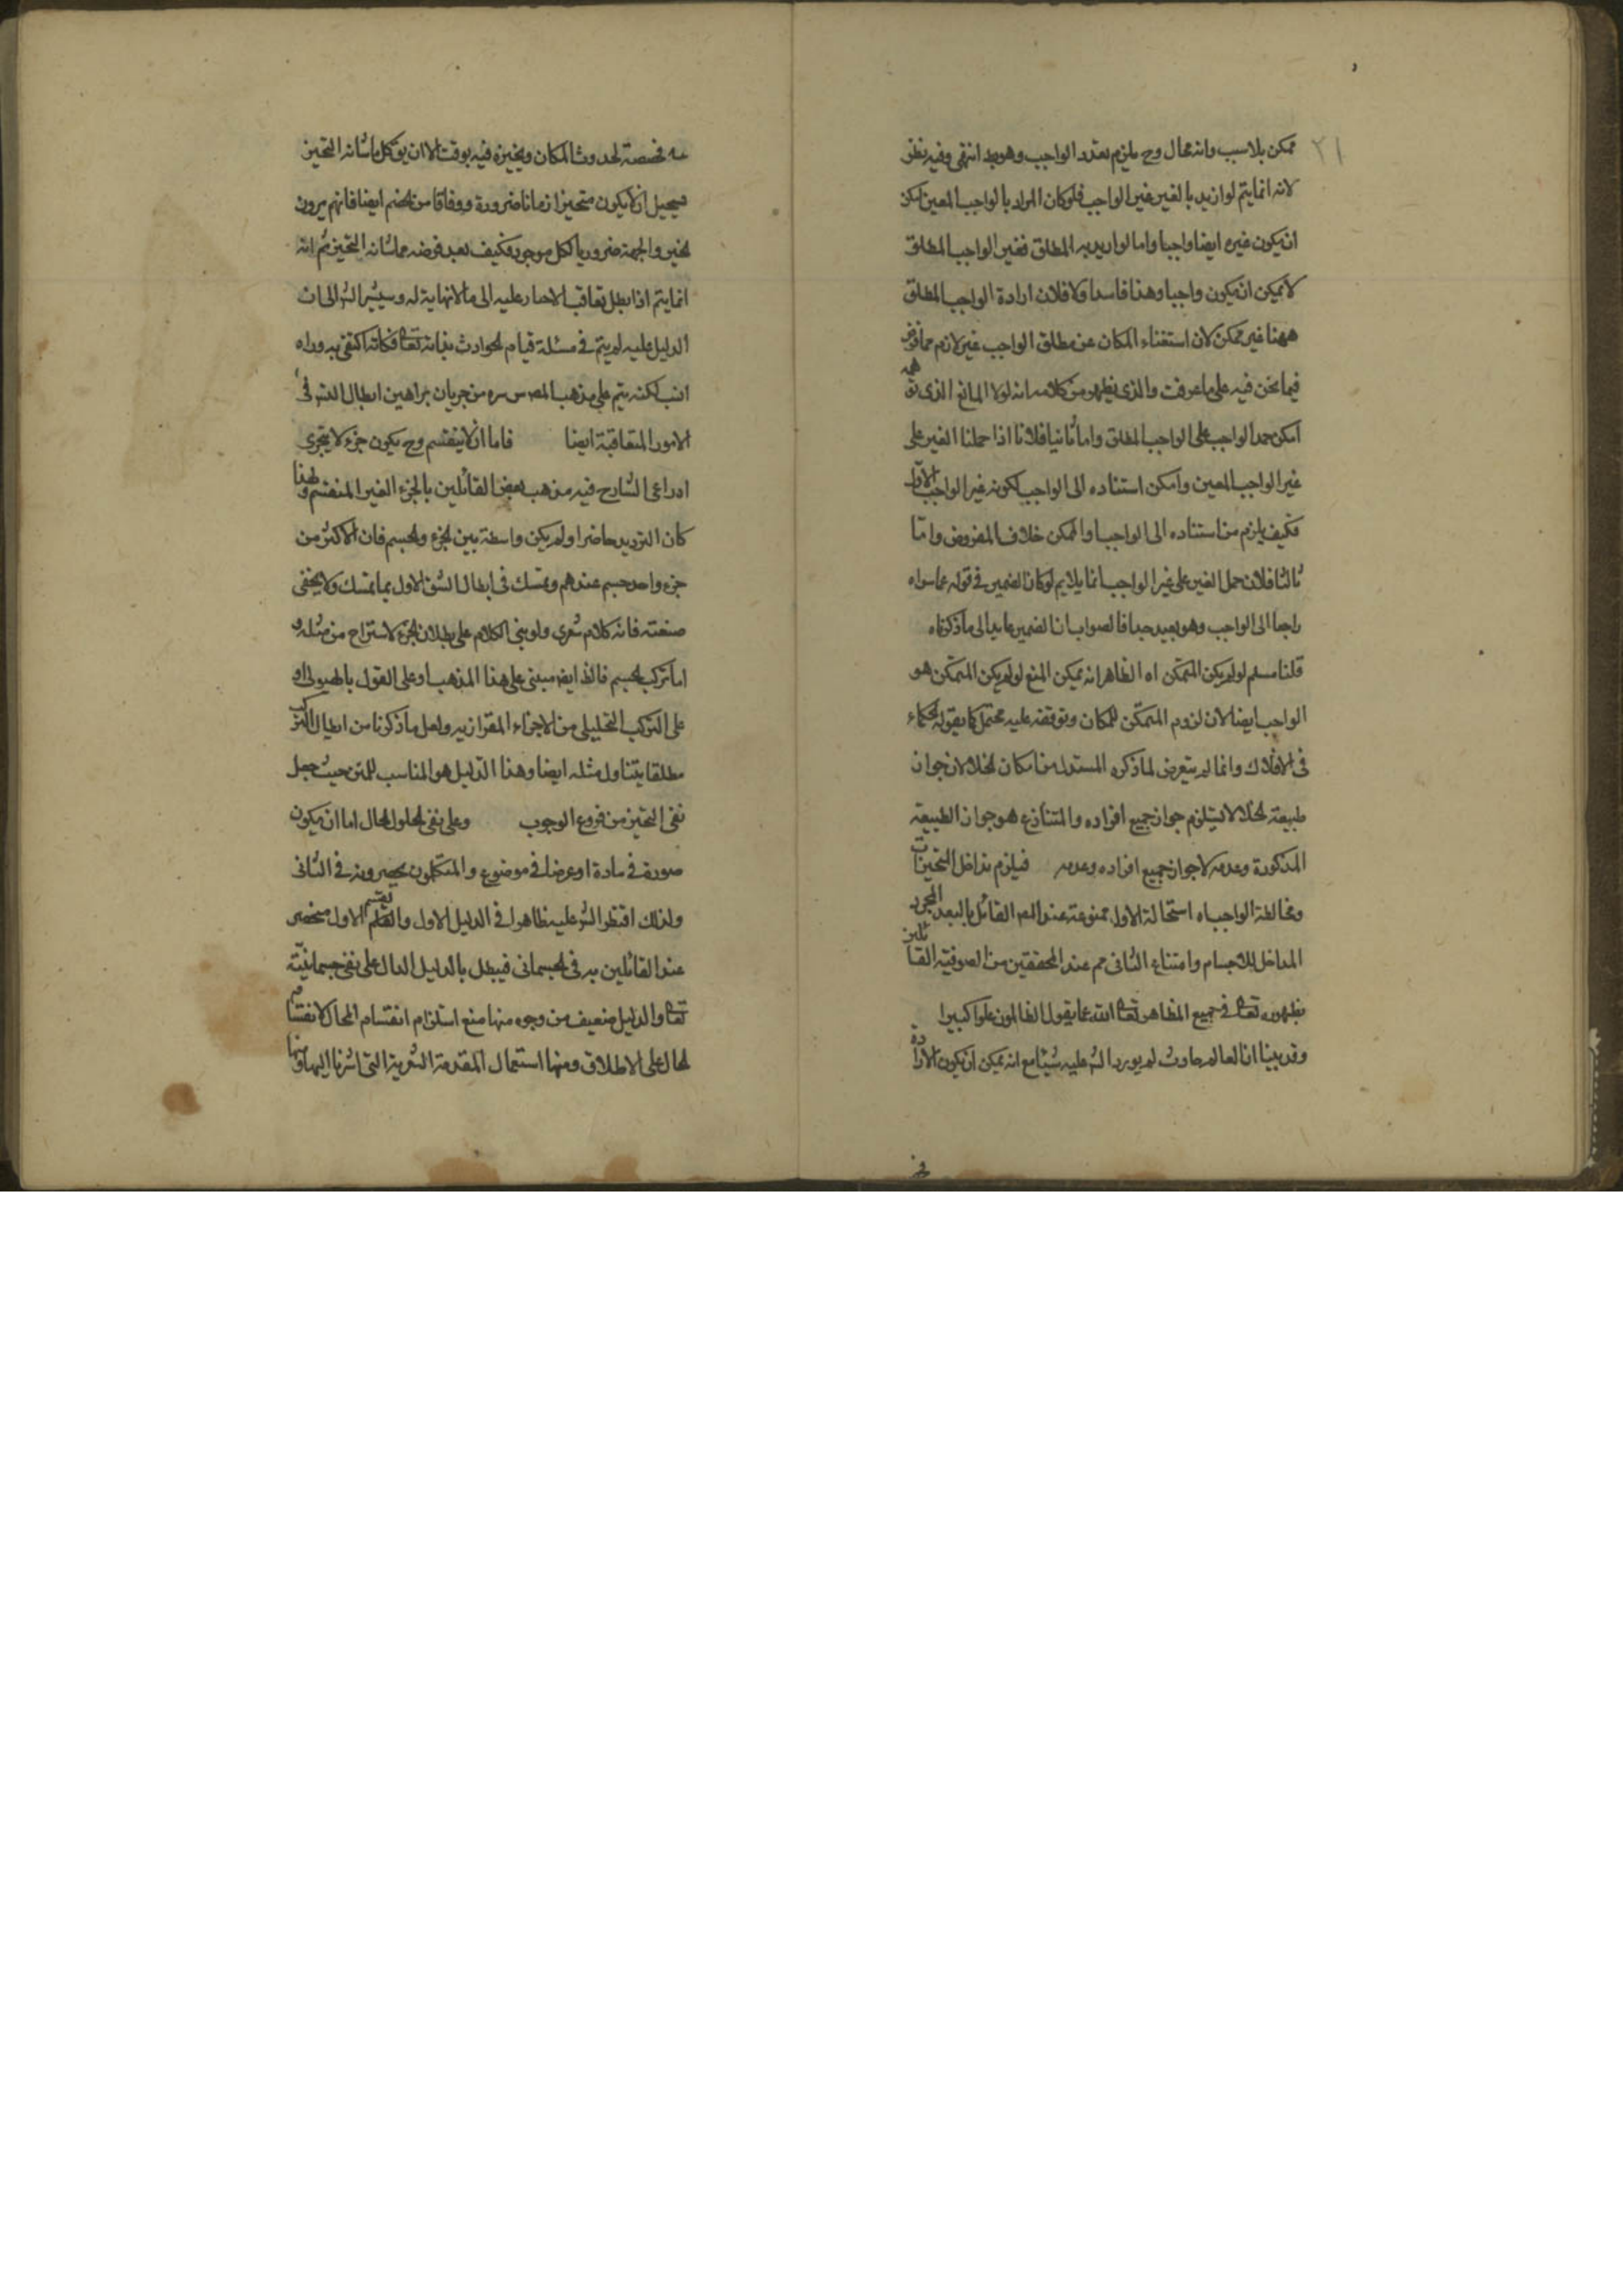 ٢١
ممكن بلا سبب وانه محال وح يلزم تعدد الواجب وهو بط انتهى وفيه نظر
لانه انما يتم لو اريد بالغير غير الواجب فلو كان المراد بالواجب المعين امكن
ان يكون غيره ايضا واجبا واما لو اريد به المطلق فغير الواجب المطلق
لا يمكن ان يكون واجبا وهذا فاسد اولا فلان ارادة الواجب المطلق
ههنا غير ممكن لان استغناء المكان عن مطلق الواجب غير لازم مما فرض
فيما نحن فيه على ما عرفت والذي يظهر من كلامه انه لولا المانع الذي
امكن حمل الواجب على الواجب المطلق واما ثانيا فلانا اذا حملنا الغير على
غير الواجب المعين وامكن استناده الى الواجب لكونه غير الواجب الاول
فكيف يلزم من استناده الى الواجب او الممكن خلاف المفروض واما
ثالثا فلان حمل الغير على غير الواجب انما يلايم لو كان الضمير في قوله عما سواه
راجعا الى الواجب وهو بعيد جدا فالصواب ان الضمير عايد الى ما ذكرناه
قلنا مسلم لو لم يكن المتمكن اه الظاهر انه يمكن المنع لو لم يكن المتمكن هو
الواجب ايضا لان لزوم المتمكن للمكان وتوقفه عليه محتمل كما يقوله الحكماء
في الافلاك وانما لم يتعرض لما ذكره المستدل من امكان الخلا لان جواز
طبيعة الخلا لا يستلزم جواز جميع افراده والمتنازع هو جواز الطبيعة
المذكورة وعدمه لا جواز جميع افراده وعدمه فيلزم تداخل المتحيزات
ومخالطة الواجب اه استحالة الاول ممنوعة عند المص القائل بالبعد المجرد
المداخل للاجسام وامتناع الثاني مم عند المحققين من الصوفية القائلين
بظهوره تعالى في جميع المظاهر تعالى الله عما يقول الظالمون علوا كبيرا
وقد بينا ان العالم حادث لم يورد الش عليه شيئا مع انه يمكن ان يكون الارادة
مخصصة لحدوث المكان وتحيزه فيه بوقت الا ان يق كل ما شانه التحيز
يستحيل ان لا يكون متحيزا زمانا ضرورة ووفاقا من الخصم ايضا فانهم يرون
الحيز والجهة ضروريا لكل موجود فكيف بعد فرضه مما شانه التحيز ثم انه
انما يتم اذا بطل تعاقب الاحياز عليه الى ما لا نهاية له وسيشير الش الى ان
الدليل عليه لم يتم في مسئلة قيام الحوادث بذاته تعالى فكانه اكتفى به
لكنه يتم على مذهب المص س سره من جريان براهين ابطال التس في
الامور المتعاقبة ايضا فاما ان لا ينقسم وح يكون جزء لا يتجزى
الشارح فيه مذهب بعض القائلين بالجزء الغير المنقسم ولهذا
كان الترديد حاضرا ولم يكن واسطة بين الجزء والجسم فان الاكثر من
جزء واحد جسم عندهم وتمسك في ابطال الشق الاول بما تمسك ولا يخفى
ضعفه فانه كلام شعري ولو بني الكلام على بطلان الجزء لاستراح من مثله و
اما تركب الجسم فالظ ايضا مبني على هذا المذهب او على القول بالهيولى او
على التركب التحليلي من الاجزاء المقدارية ولعل ما ذكرنا من ابطال التركب
مطلقا يتناول مثله ايضا وهذا الدليل هو المناسب للمتن حيث جعل
نفي التحيز من فروع الوجوب وعلى نفي الحلول الحال اما ان يكون
صورة في مادة او عرضا في موضوع والمتكلمون يحصرونه في الثاني
ولذلك الش عليه ظاهرا في الدليل الاول والقسم الاول منحصر
عند القائلين به في الجسماني فيبطل بالدليل الدال على نفي جسمانيته
تعالى والدليل ضعيف من وجوه منها منع استلزام انقسام المحال لانقسام
الحال على الاطلاق ومنها استعمال المقدمة الشعرية التي اشرنا اليها ومنها